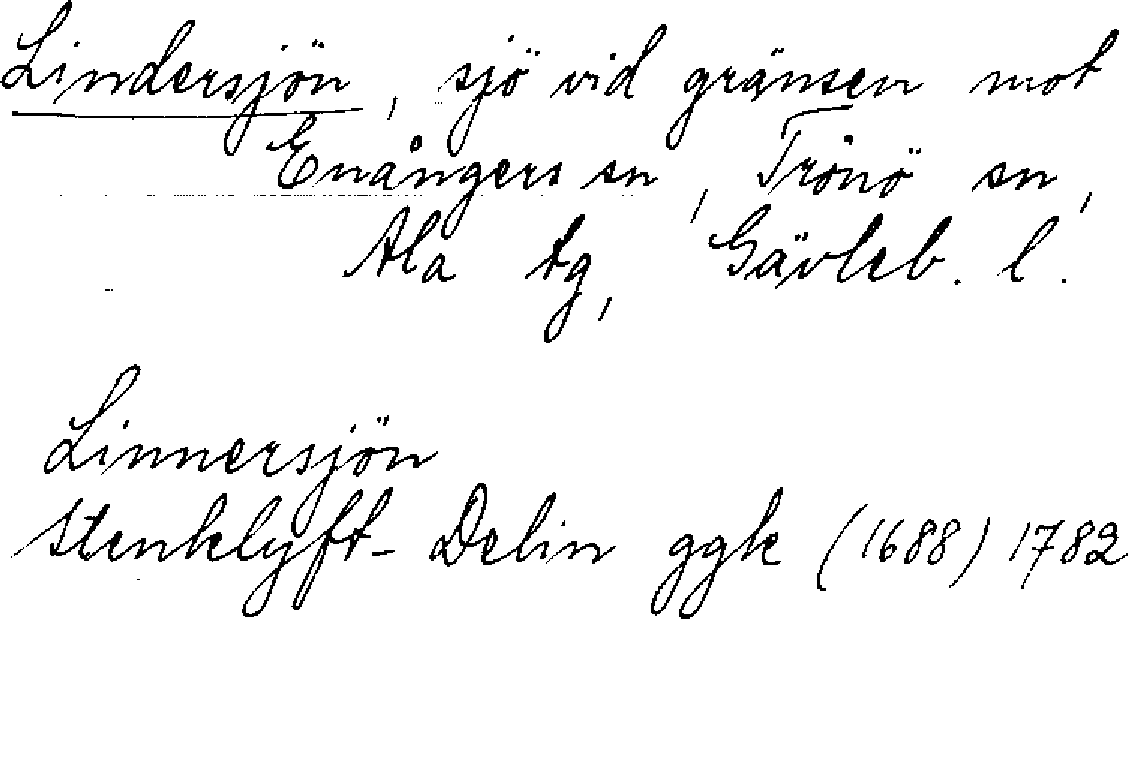 Lindersjön, sjö vid gränsen mot
Enångers sn, Trönö sn,
Ala tg, Gävleb. l.
Linnersjön
Stenklyft- Delin ggk (1688) 1782